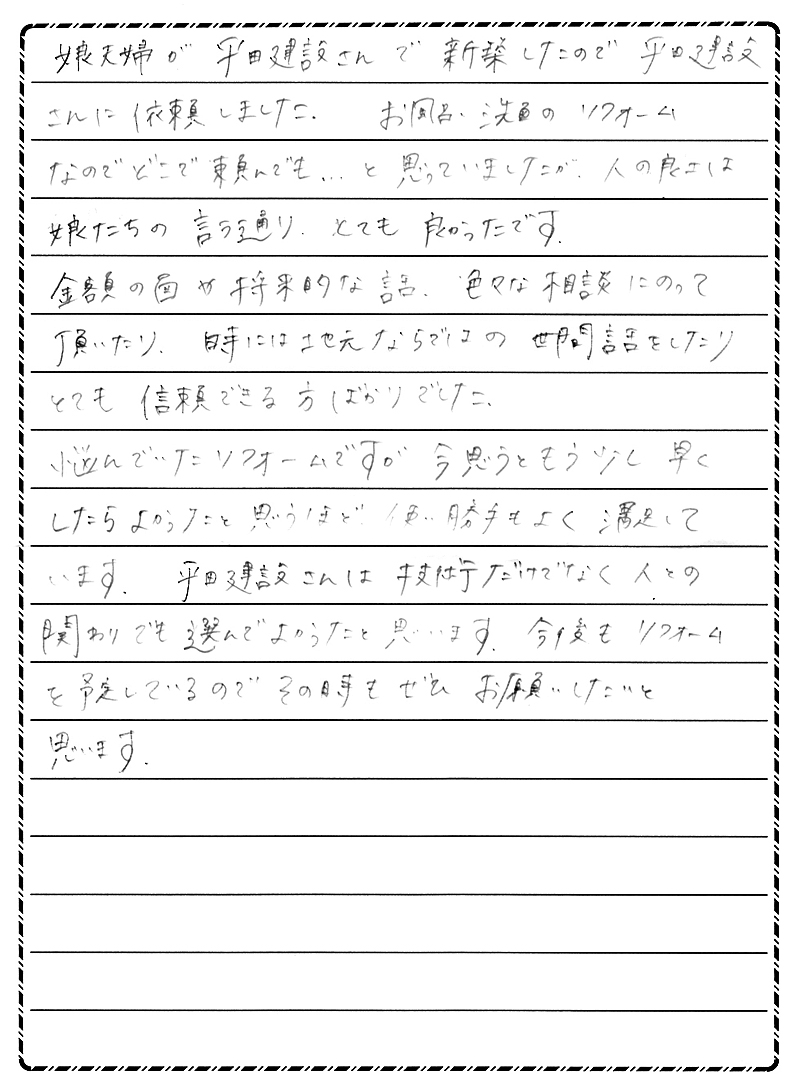 娘夫婦が平田建設さんで新築したので平田建設
さんに依頼しました。 お風呂・洗面のリフォーム
なのでどこで頼んでも...と思っていましたが、人の良さは
娘たちの言う通り、とても良かったです。
金額の面や将来的な話、色々な相談にのって
頂いたり、時には地元ならではの世間話をしたり
とても信頼できる方ばかりでした。
悩んでいたリフォームですが今思うともう少し早く
したらよかったと思うほど、使い勝手もよく満足して
います。 平田建設さんは技術だけでなく人との
関わりでも選んでよかったと思います。今後もリフォーム
を予定しているのでその時もぜひお願いしたいと
思います。